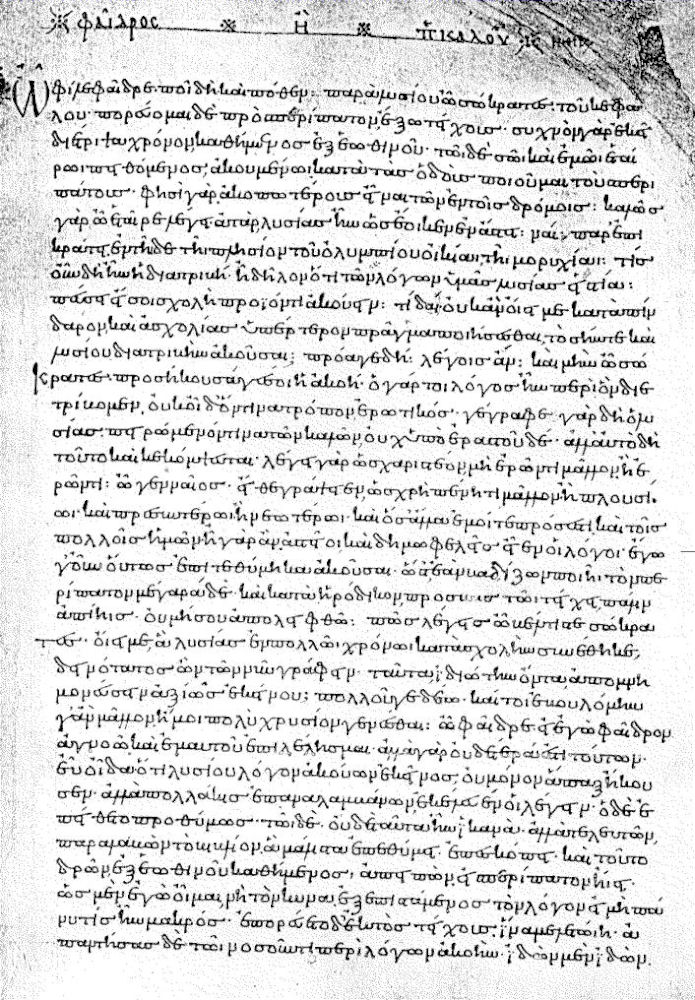 φαῖδρος ἢ περὶ καλοῦ
ὦ φίλε φαῖδρε ποῖ δὴ καὶ πόθεν: παρὰ λυσίου ὦ σώκρατες· τοῦ κεφά
λου· πορεύομαι δὲ πρὸς περίπατον ἔξω τείχους· συχνὸν γὰρ ἐκεῖ
διέτριψα χρόνον καθήμενος ἐξ ἑωθινοῦ· τῶι δὲ σῶι καὶ ἐμῶι ἑταί
ρωι πειθόμενος ἀκουμενῶι κατὰ τὰς ὁδοὺς ποιοῦμαι τοὺς περι
πάτους· φησὶ γὰρ ἀκοπωτέρους εἶναι τῶν ἐν τοῖς δρόμοις: καλῶς
γὰρ ὦ ἑταῖρε λέγει ἀτὰρ λυσίας ἦν ὡς ἔοικεν ἐν ἄστει: ναί· παρ' ἐπι
κράτει ἐν τῆιδε τῆι πλησίον τοῦ ὀλυμπίου οἰκίαι τῆι μορυχίαι: τίς
οὖν δὴ ἦν ἡ διατριβή· ἢ δῆλον ὅτι τῶν λόγων ὑμᾶς λυσίας εἱστία:
πεύσει εἴ σοι σχολὴ προϊόντι ἀκούειν: τί δαί; οὐκ ἂν οἴει με κατὰ πίν
δαρον καὶ ἀσχολίας ὑπέρτερον πρᾶγμα ποιήσεσθαι τὸ σήν τε καὶ
λυσίου διατριβὴν ἀκοῦσαι; πρόαγε δή: λέγοις ἄν: καὶ μὴν ὦ σώ
κρατες προσήκουσά γε σοι ἡ ἀκοή· ὁ γάρ τοι λόγος ἦν περὶ ὃν διε
τρίβομεν οὐκ οἶδ' ὅντινα τρόπον ἐρωτικός· γέγραφε γὰρ δὴ ὁ λυ
σίας πειρώμενόν τινα τῶν καλῶν, οὐχ ὑπὸ ἐραστοῦ δέ· ἀλλ' αὐτὸ δὴ
τοῦτο καὶ κεκόμψευται· λέγει γὰρ ὡς χαριστέον μὴ ἐρῶντι μᾶλλον ἢ ἐ
ρῶντι: ὦ γενναῖος· εἴθε γράψειεν ὡς χρὴ πένητι μᾶλλον ἢ πλουσί
ωι· καὶ πρεσβυτέρωι ἢ νεωτέρωι· καὶ ὅσα ἄλλα ἐμοί τε πρόσεστι καὶ τοῖς
πολλοῖς ἡμῶν ἦ γὰρ ἂν ἀστεῖοι καὶ δημωφελεῖς εἶεν οἱ λόγοι· ἐγὼ
γ' οὖν οὕτως ἐπιτεθύμηκα ἀκοῦσαι· ὥστ' ἐὰν βαδίζων ποιῆι τὸν πε
ρίπατον μέγαράδε· καὶ κατὰ ἡρόδικον προσβὰς τῶι τείχει πάλιν
ἀπίηις· οὐ μή σου ἀπολειφθῶ: πῶς λέγεις ὦ βέλτιστε σώκρα
τες· οἴει με, ἃ λυσίας ἐν πολλῶι χρόνωι κατὰ σχολὴν συνέθηκε,
δεινότατος ὢν τῶν νῦν γράφειν· ταῦτα ἰδιώτην ὄντα ἀπομνη
μονεύσειν ἀξίως ἐκείνου; πολλοῦ γε δέω· καίτοι ἐβουλόμην
γ' ἂν μᾶλλον ἤ μοι πολὺ χρυσίον γενέσθαι: ὦ φαῖδρε εἰ ἐγὼ φαῖδρον
ἀγνοῶ καὶ ἐμαυτοῦ ἐπιλέλησμαι· ἀλλὰ γὰρ οὐδέτερά ἐστι τούτων·
εὖ οἶδα ὅτι λυσίου λόγον ἀκούων ἐκεῖνος, οὐ μόνον ἅπαξ ἤκου
σεν· ἀλλὰ πολλάκις ἐπαναλαμβάνων ἐκέλευέν οἱ λέγειν· ὁ δὲ ἐ
πείθετο προθύμως· τῶι δὲ οὐδὲ ταῦτα ἦν ἱκανά· ἀλλὰ τελευτῶν
παραλαβὼν τὸ βιβλίον, ἃ μάλιστα ἐπεθύμει ἐπεσκόπει· καὶ τοῦτο
δρῶν ἐξ ἑωθινοῦ καθήμενος, ἀπειπὼν εἰς περίπατον ἤιει·
ὡς μὲν ἐγὼ οἶμαι, νὴ τὸν κύνα, ἐξεπιστάμενος τὸν λόγον, εἰ μὴ πάνυ
τις ἦν μακρός· ἐπορεύετο δ' ἐκτὸς τείχους· ἵνα μελετώιη· ἀ
παντήσας δὲ τῶι νοσοῦντι περὶ λόγων ἀκοήν· ἰδὼν μὲν ἰδὼν